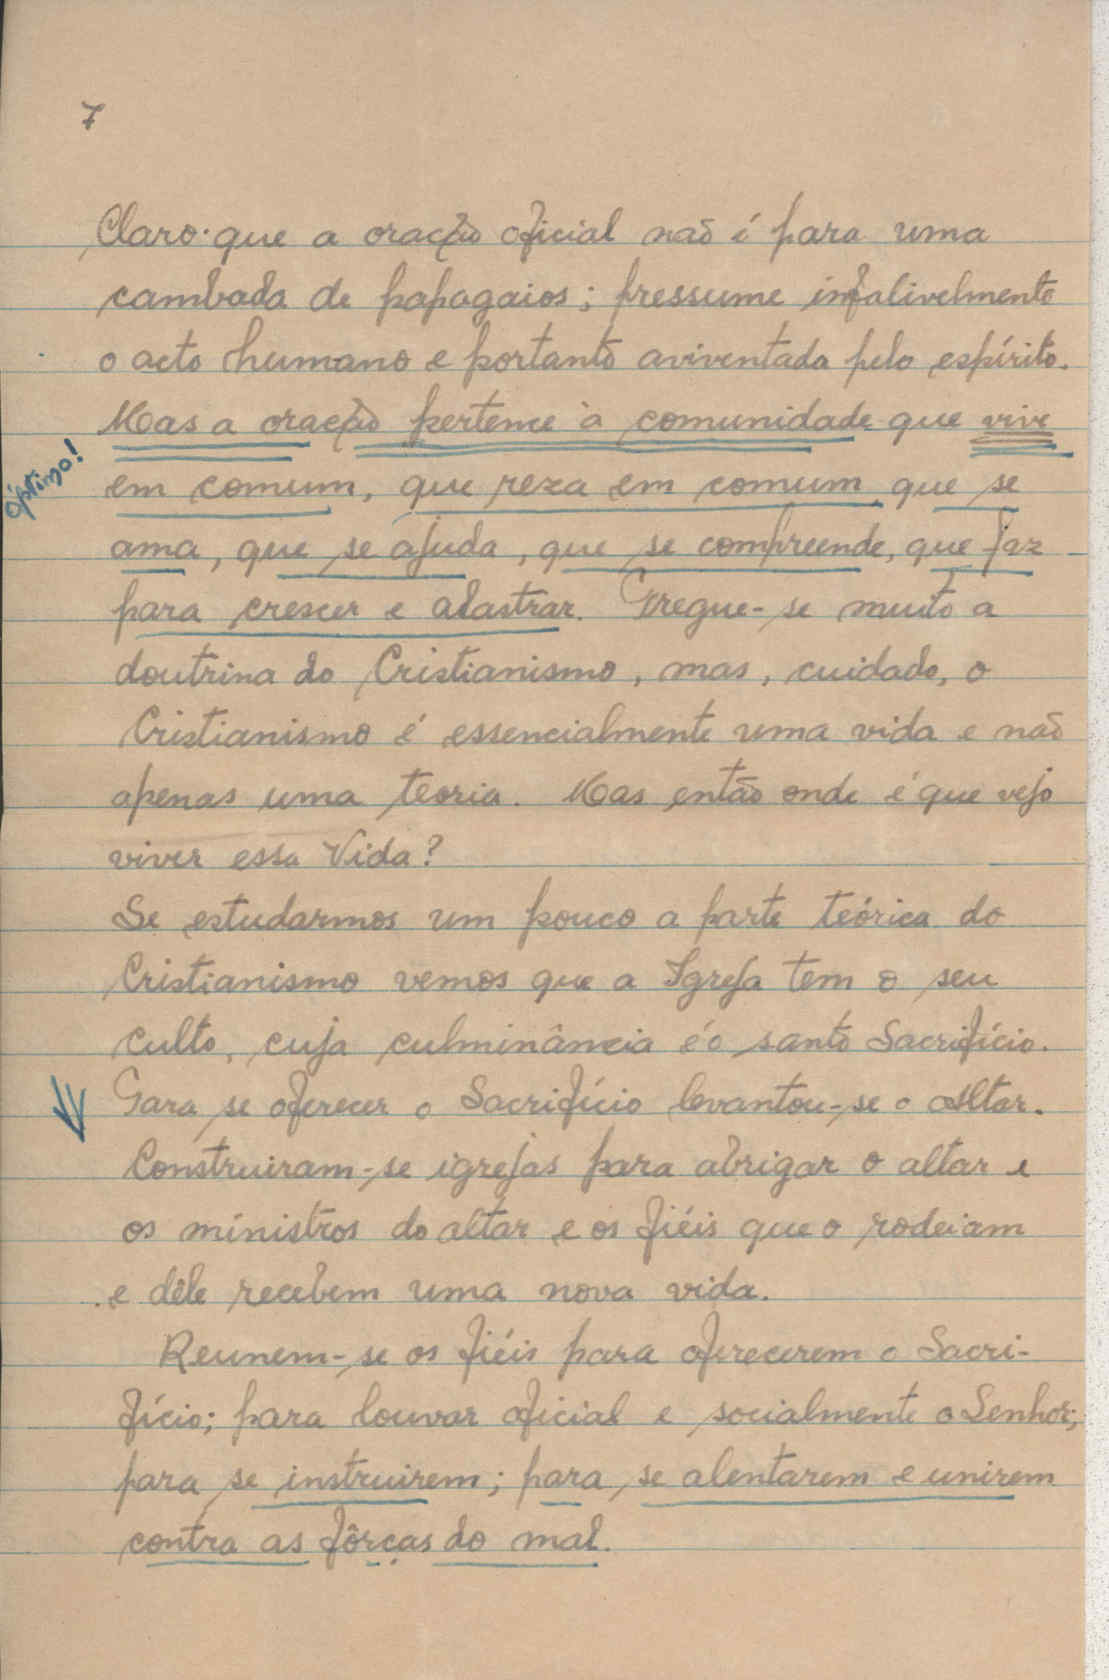 7
Claro que a oração oficial não é para uma
cambada de papagaios; pressume infalivelmente
o acto humano e portanto aviventada pelo espírito.
Mas a oração pertence à comunidade que vive
óptimo!
em comum, que reza em comum que se
ama, que se ajuda, que se compreende, que faz
para crescer e alastrar. Pregue-se muito a
doutrina do Cristianismo, mas, cuidado, o
Cristianismo é essencialmente uma vida e não
apenas uma teoria. Mas então onde é que vejo
viver essa Vida?
Se estudarmos um pouco a parte teórica do
Cristianismo vemos que a Igreja tem o seu
culto, cuja culminância é o santo Sacrifício.
Para se oferecer o Sacrifício levantou-se o Altar.
Construiram-se igrejas para abrigar o altar e
os ministros do altar e os fiéis que o rodeiam
e dêle recebem uma nova vida.
Reunem-se os fiéis para oferecerem o Sacri-
fício; para louvar oficial e socialmente o Senhor;
para se instruirem; para se alentarem e unirem
contra as fôrças do mal.